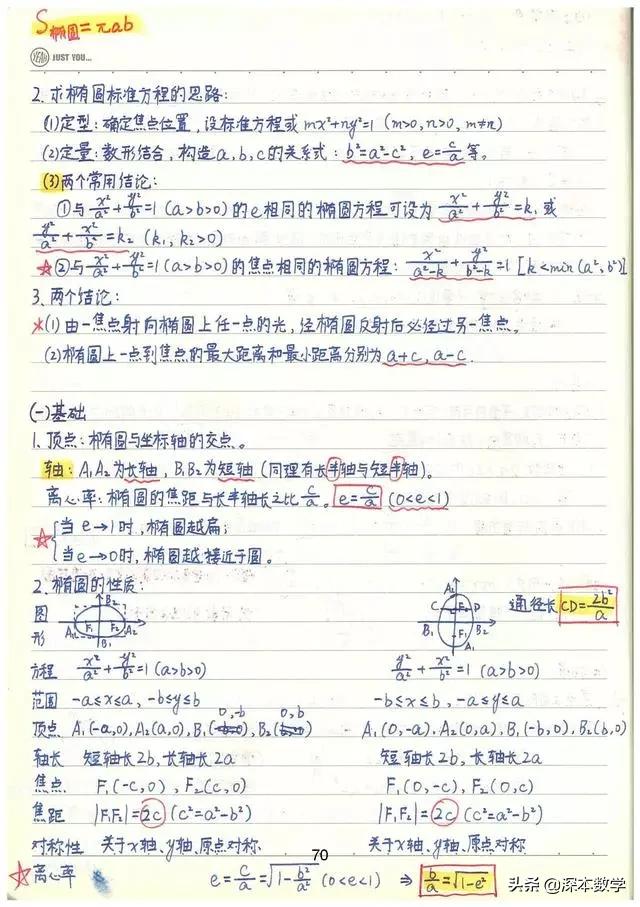 S椭圆=πab
YEAH JUST YOU...
2. 求椭圆标准方程的思路:
(1)定型:确定焦点位置,设标准方程或 mx²+ny²=1 (m>0,n>0,m≠n)
(2)定量:数形结合,构造a,b,c的关系式: b²=a²-c², e=c/a等。
(3)两个常用结论:
①与x²/a²+y²/b²=1(a>b>0)的e相同的椭圆方程可设为x²/a²+y²/b²=k₁或
y²/a²+x²/b²=k₂ (k₁,k₂>0)
☆②与x²/a²+y²/b²=1(a>b>0)的焦点相同的椭圆方程: x²/(a²-k)+y²/(b²-k)=1 [k<min(a²,b²)]
3. 两个结论:
*(1)由一焦点射向椭圆上任一点的光,经椭圆反射后必经过另一焦点。
(2)椭圆上一点到焦点的最大距离和最小距离分别为a+c,a-c.
(一)基础
1. 顶点:椭圆与坐标轴的交点。
轴:A₁A₂为长轴,B₁B₂为短轴(同理有长半轴与短半轴)。
离心率:椭圆的焦距与长半轴长之比c/a。e=c/a (0<e<1)
☆{当e→1时,椭圆越扁;
当e→0时,椭圆越接近于圆。
2. 椭圆的性质:
图形 A₁ A₂ B₁ B₂ F₁ F₂ A₂ C F₂ P B₁ B₂ F₁ A₁ 通径长 CD=2b²/a
方程 x²/a²+y²/b²=1(a>b>0) y²/a²+x²/b²=1 (a>b>0)
范围 -a≤x≤a,-b≤y≤b -b≤x≤b,-a≤y≤a
0,-b 0,b
顶点 A₁(-a,0),A₂(a,0),B₁( ),B₂( ) A₁(0,-a).A₂(0,a),B₁(-b,0),B₂(b,0)
轴长 短轴长2b,长轴长2a 短轴长2b,长轴长2a
焦点 F₁(-c,0),F₂(c,0) F₁(0,-c),F₂(0,c)
焦距 |F₁F₂|=2c(c²=a²-b²) |F₁F₂|=2c(c²=a²-b²)
对称性 关于x轴、y轴、原点对称. 关于x轴、y轴、原点对称
70
☆离心率 e=c/a=√(1-b²/a²) (0<e<1) ⇒ b/a=√(1-e²)
头条@深本数学